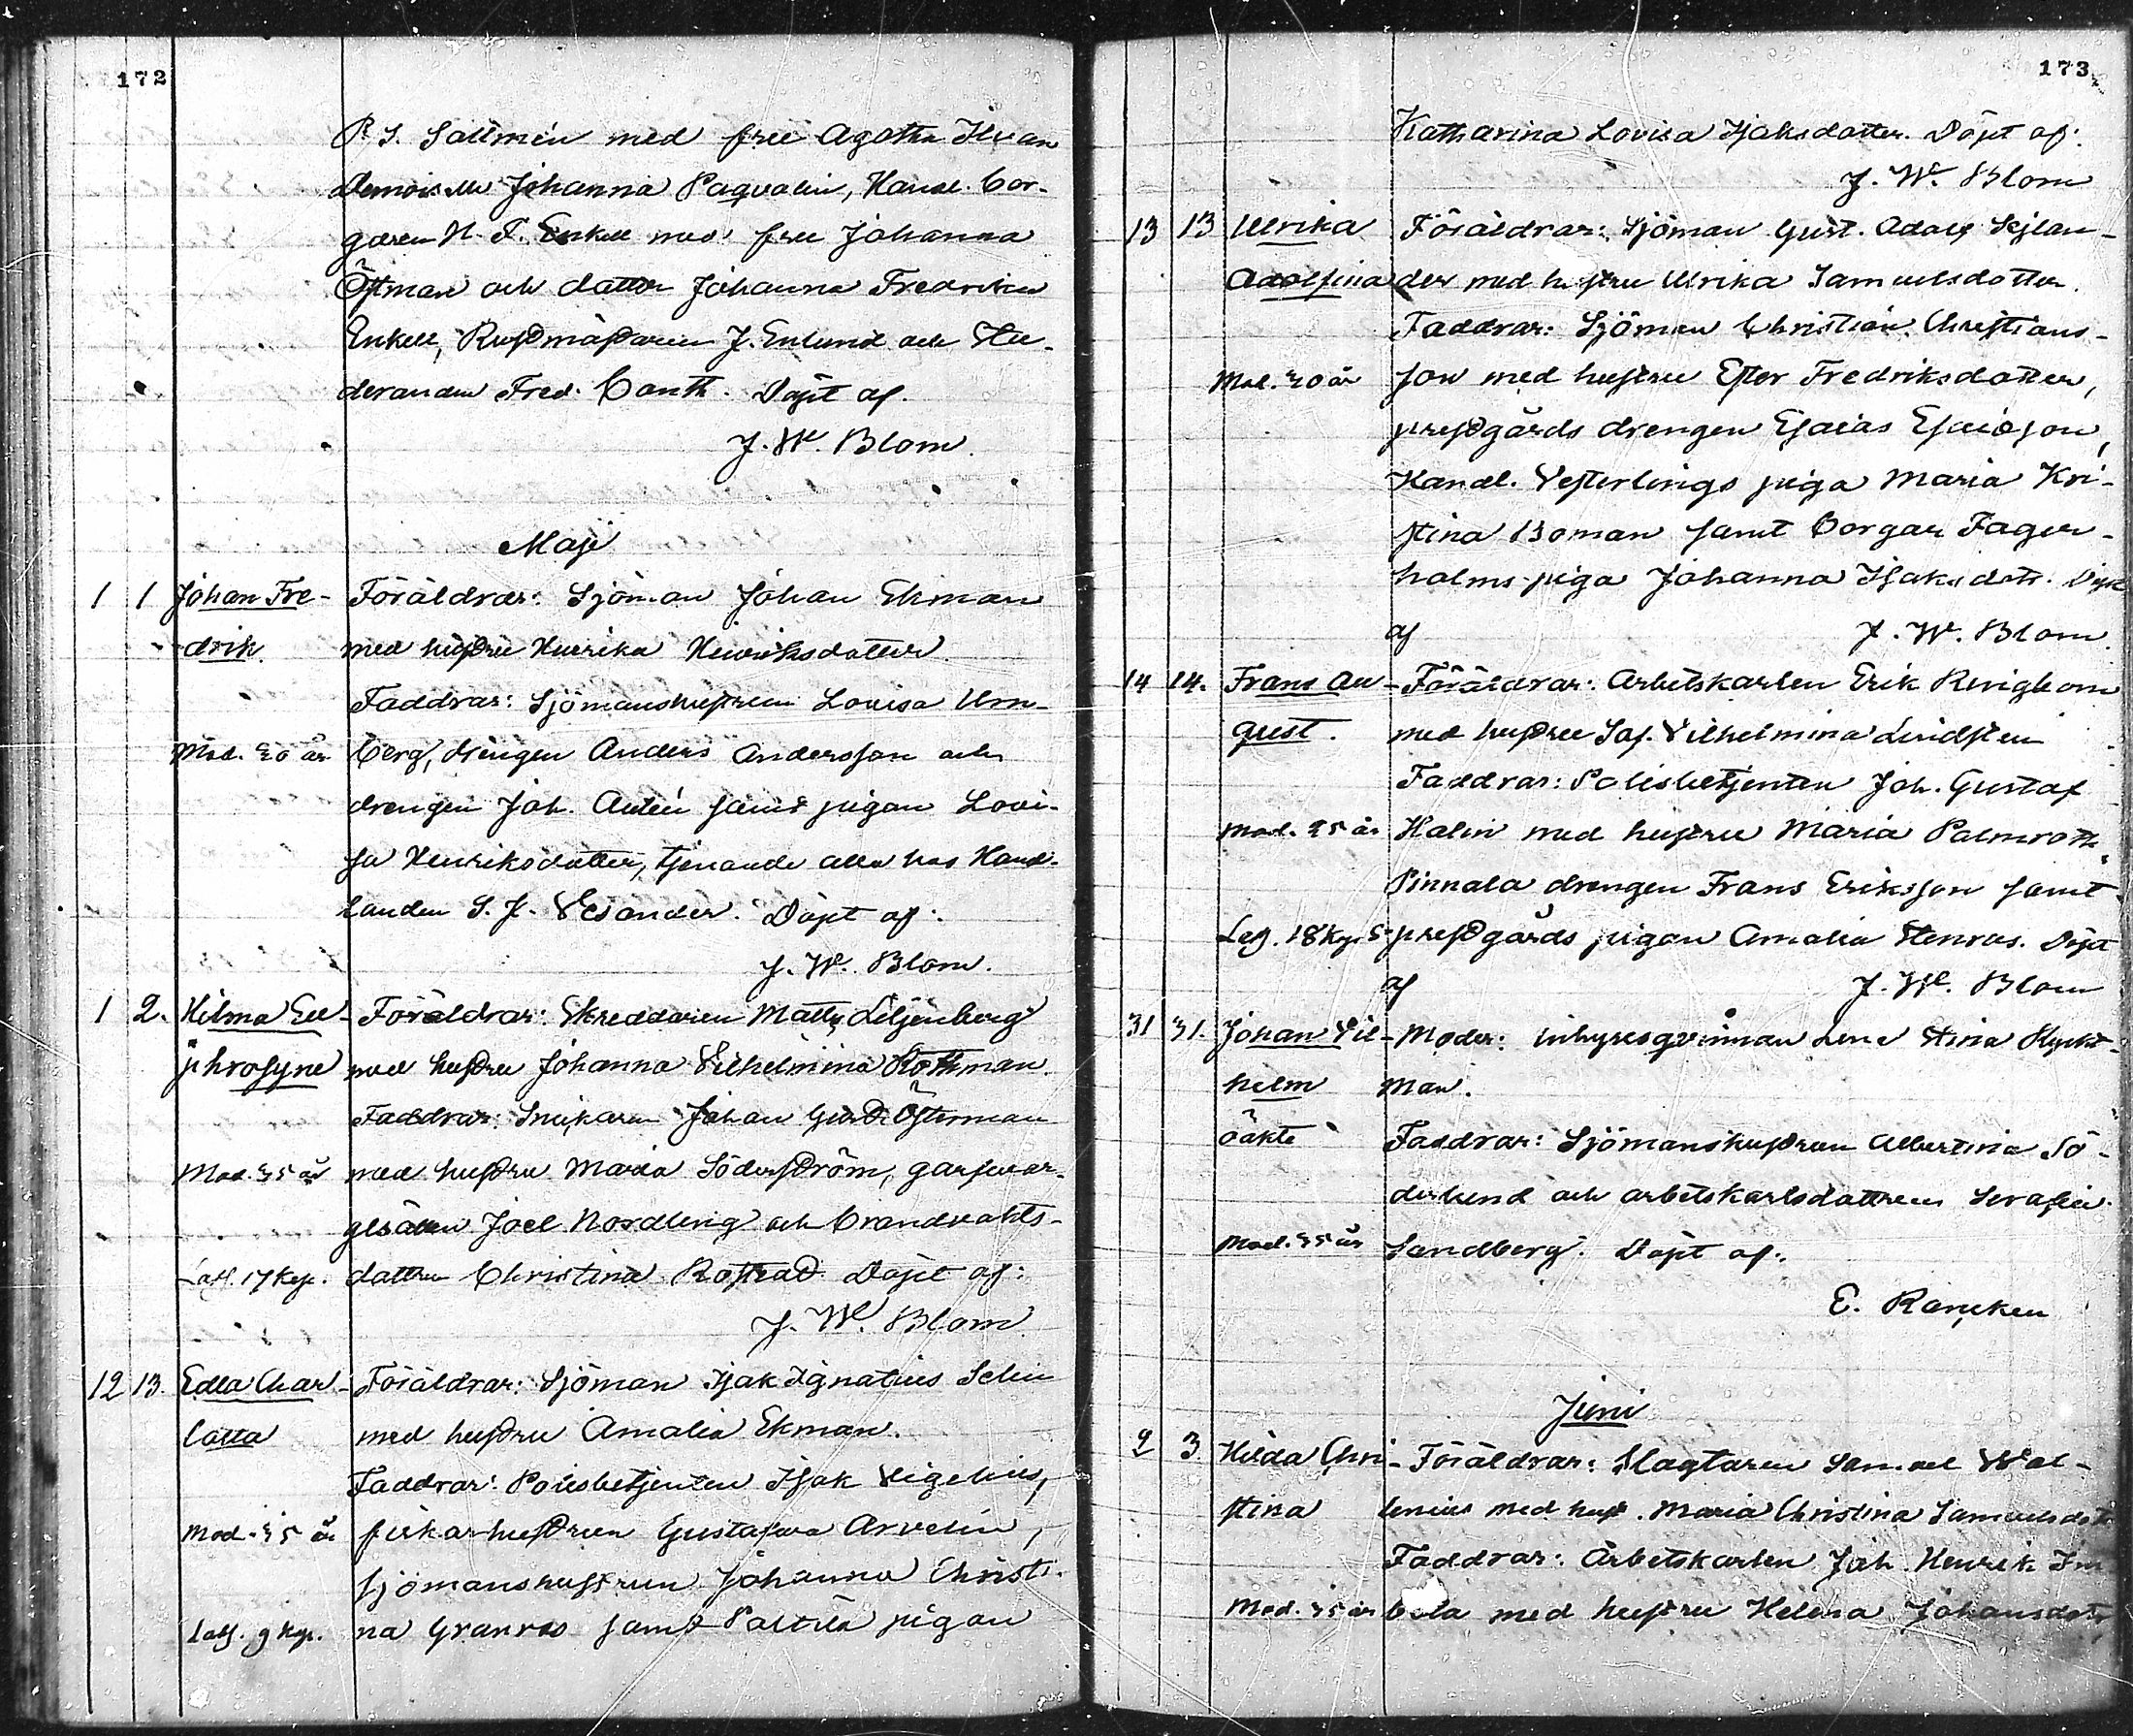 172
P. S. Sallmén med fru Agatha
Demoiselle Johanna Paqvalin, Handl. bor-
garen H. F. Enkell med fru Johanna
Östman och dotter Johanna Fredrika
Enkell, Rustmästaren J. Enlund och Stu-
deranden Fred. Conth. Döpt af.
J. W. Blom.
Maji
1 1 Johan Fre- Föräldrar: Sjöman Johan Ekman
drik. med hustru Henrika Henriksdotter
Faddrar: Sjömanshustrun Lovisa
Mod. 20 år berg, drengen Anders Andersson och
drengen Joh. Antén samt pigan Lovi-
sa Henriksdotter, tjenande alla hos Hand-
landen S. J. Vesander. Döpt af:
J. W. Blom.
1 2. Hilma Eu- Föräldrar: Skreddaren Matts Liljenberg
phrosyne med hustru Johanna Vilhelmina Rothman.
Faddrar: Snickaren Johan Gust. Österman
Mod. 35 år med hustru Maria Söderström, garfvar-
gesällen Joel Nordling och brandvakts-
17 Kp. dottren Christina Döpt af:
J. W. Blom
12 13. Edla Char- Föräldrar: Sjöman Isak Ignatius Selin
lotta med hustru Amalia Ekman.
Faddrar: Polisbetjenten Isak Vigelius,
Mod. 35 år hustrun Gustafva Arvelin,
sjömanshustrun Johanna Christi-
9 Kp. na Granroos samt Paltila pigan
173
Katharina Lovisa Isaksdotter. Döpt af:
J. W. Blom
13 13 Ulrika Föräldrar: Sjöman Gust. Adolf Sejlan-
Adolfina der med hustru Ulrika Samuelsdotter.
Faddrar: Sjöman Christian Christians-
Mod. 20 år son med hustru Ester Fredriksdotter,
prestgårds drengen Esaias Esaiason,
Handl. Vesterlings piga Maria Kri-
stina Boman samt borgar Fager-
holms piga Johanna Isaksdotr. Döpt
af J. W. Blom.
14 14. Frans Au- Föräldrar: Arbetskarlen Erik Ringbom
gust. med hustru Vilhelmina Lindsten
Faddrar: Polisbetjenten Joh. Gustaf
Mod. 25 år Halin med hustru Maria Palmroth,
Pinnala drengen Frans Eriksson samt
18 Kp. prestgårds pigan Amalia Stenroos. Döpt
af J. W. Blom
31 31. Johan Vil- Moder: inhyresqvinnan Lena Stina
helm man.
oäkta Faddrar: Sjömanshustrun Albertina Sö-
derlund och arbetskarlsdottren Serafia
Mod. 35 år Sandberg. Döpt af:
E. Rancken
Juni
2 3 Hilda Chri- Föräldrar: Slagtaren Samuel Wal-
stina lenius med hust. Maria Christina Samuelsdotr
Faddrar: Arbetskarlen Joh. Henrik
Mod. 35 år med hustru Helena Johansdotr